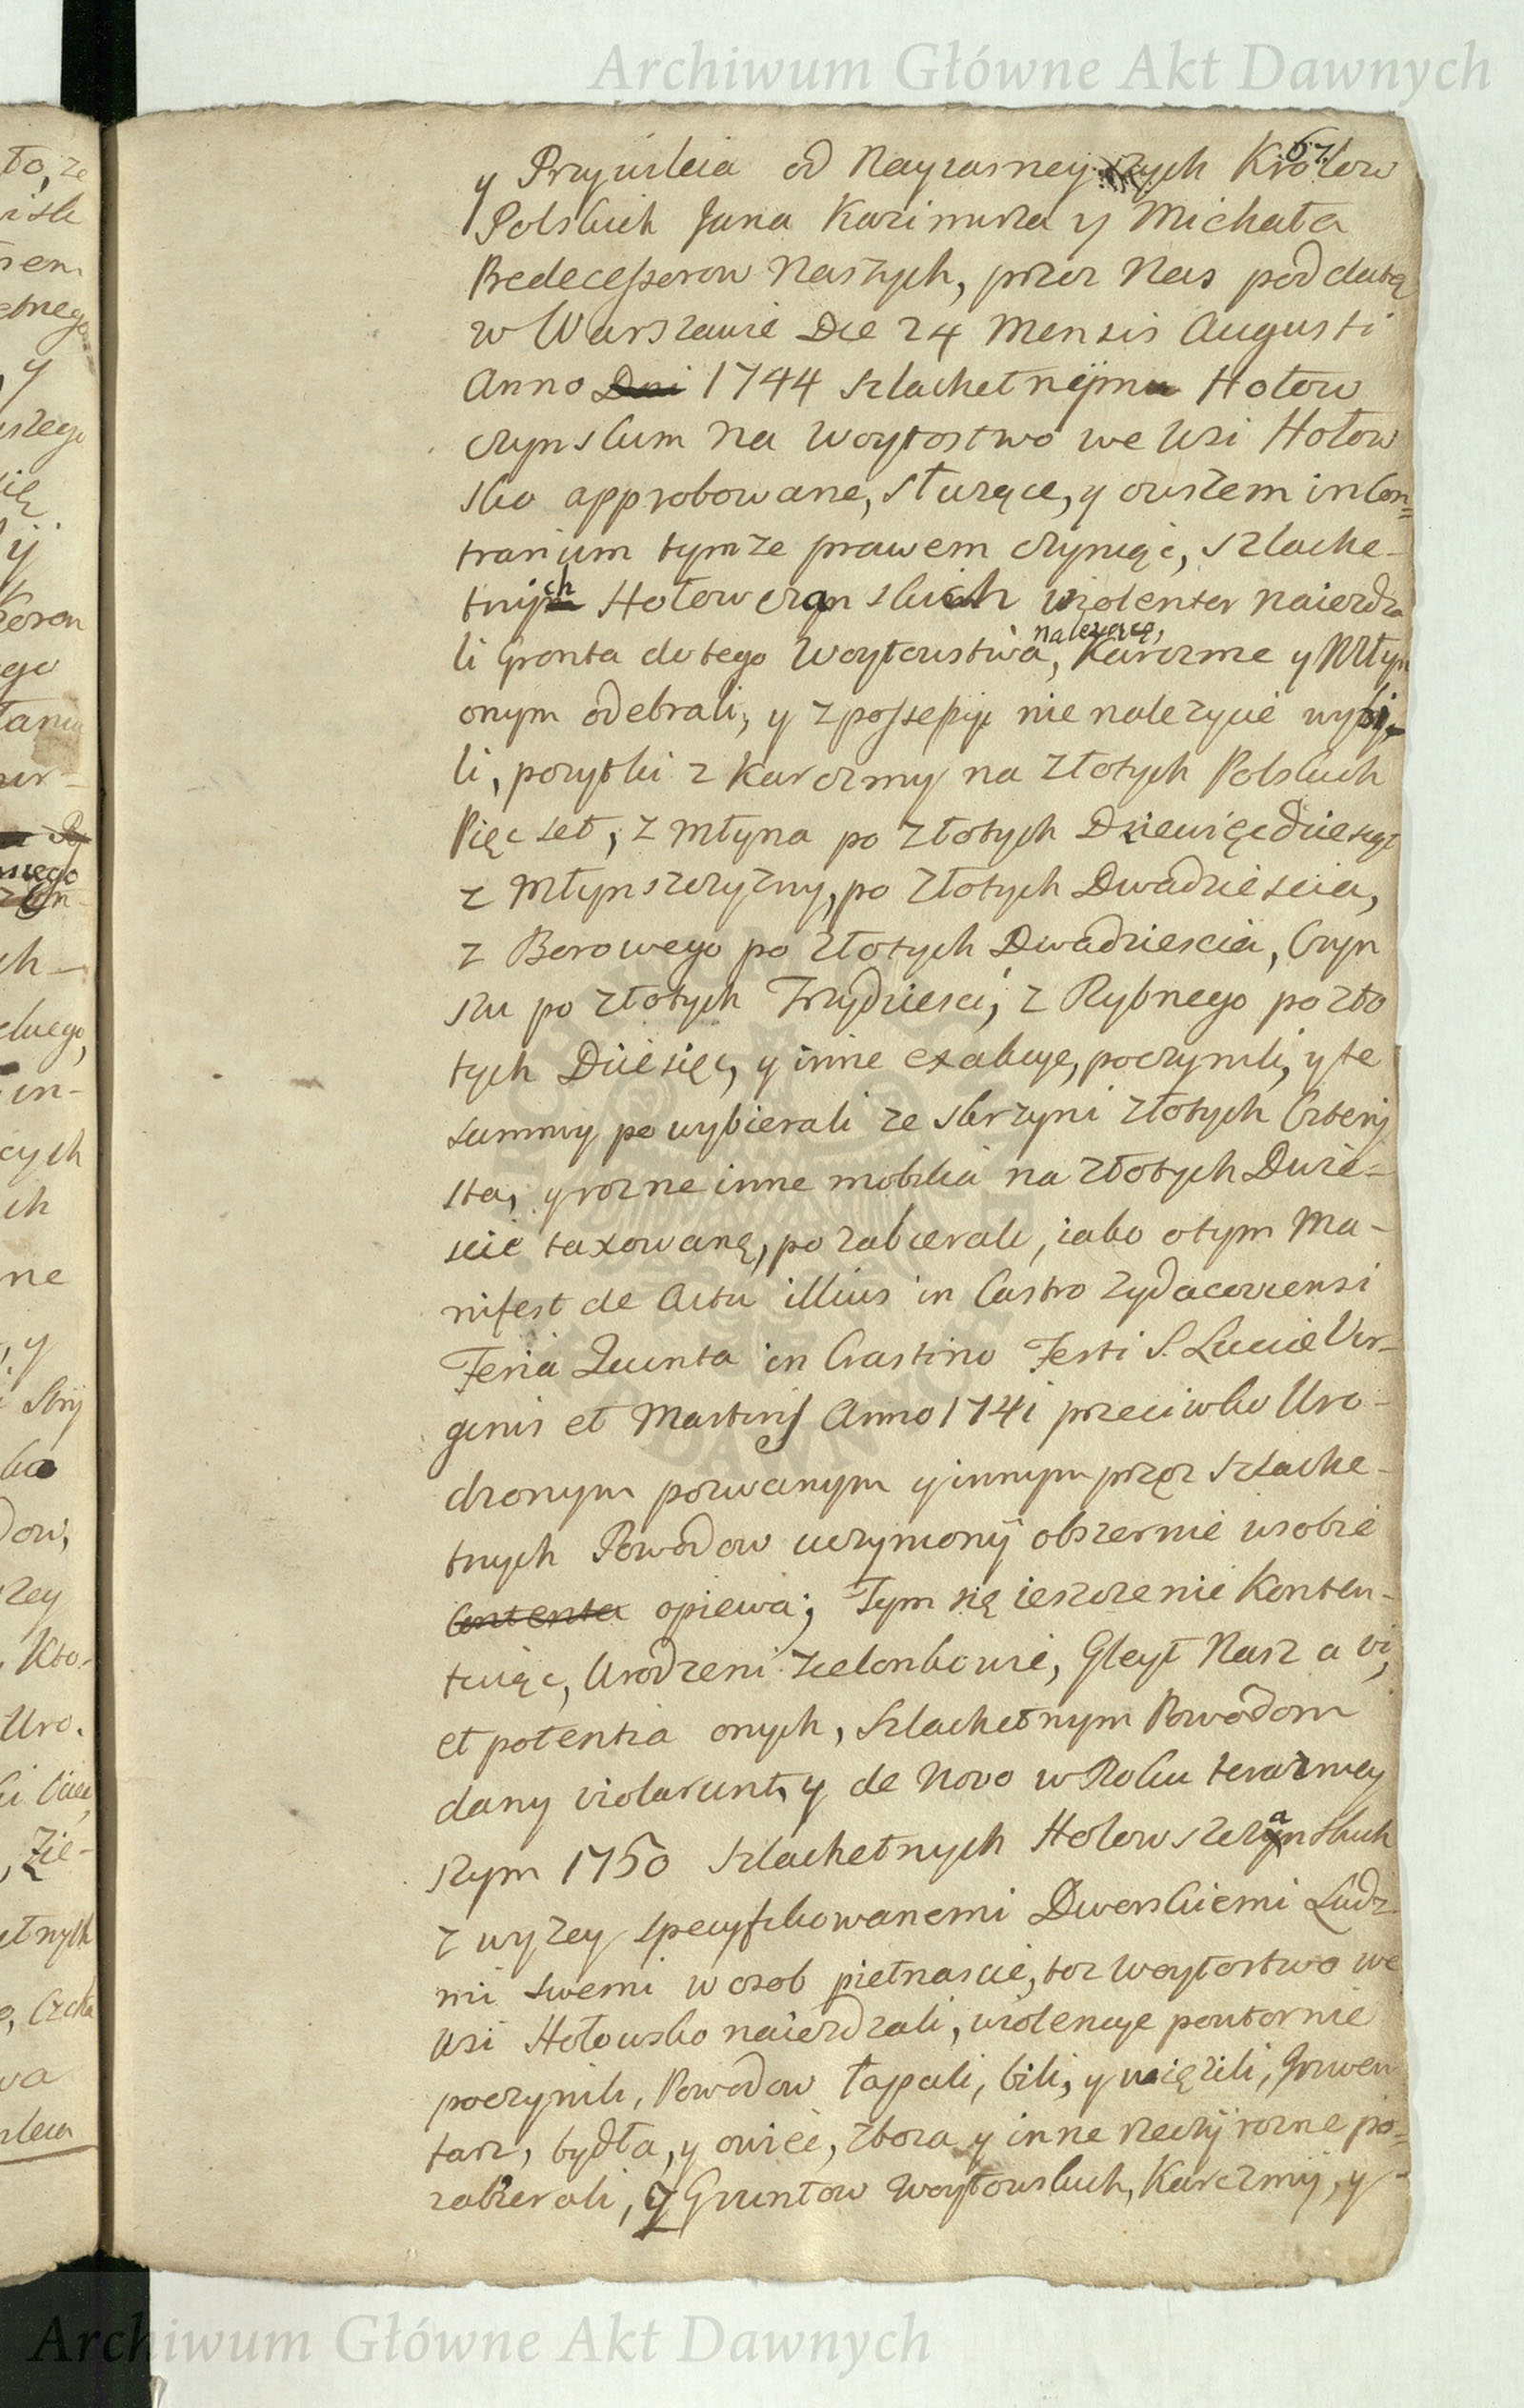 Archiwum Główne Akt Dawnych
67.
y Przywileia od Nayiasnieyszych Krolow
Polskich Jana Kazimirza y Michała
Predecessorow Naszych, przez Nas pod datą
w Warszawie Die 24 Mensis Augusti
Anno Dni 1744 szlachetnym Hołow
czynskim na Woytostwo we Wsi Hołow
sko approbowane, słuzące, y owszem in Con=
trarium tymze prawem czyniąc, szlache-
tnych Hołowczanskich violenter naiezdza
li Gronta do tego Woytowstwa należące, Karczme y Młyn
onym odebrali, y z possessyi nie nalezycie wybi,
li, pozytki z Karczmy na Złotych Polskich
Pięcset, z Młyna po Złotych Dziewięcdziesiąt
z Młynszczyzny, po Złotych Dwadziescia,
z Borowego po Złotych Dwadziescia, Czyn
szu po Złotych Trzydziesci, z Rybnego po zło
tych Dziesięc, y inne exakcye, poczynili, y te
summy powybierali ze skrzyni Złotych Cztery
sta, y rozne inne mobilia na Złotych Dwie=
scie taxowaną, pozabierali, iako o tym Ma-
nifest de Actu illius in Castro Zydaczoviensi
Feria Quinta in Crastino Festi S. Luciæ Vir-
ginis et Martiris Anno 1741 przeciwko Uro-
dzonym pozwanym y innym przez szlache-
tnych Powodow uczyniony obszernie w sobie
Contenta opiewa; Tym się ieszcze nie Konten-
tuiąc, Urodzeni Zielonkowie, Gleyt Nasz a vi,
et potentia onych, szlachetnym Powodom
dany violarunt, y de novo w Roku terazniey
szym 1750 Szlachetnych Holowszczanskich
z wyzey specyfikowanemi Dworskiemi Ludz
mi swemi w osob pietnascie, toz Woytostwo we
Wsi Hołowsko naiezdzali, violencye powtornie
poczynili, Powodow łapali, bili, y więzili, Inwen
tarz, bydła, y owiec, zboza y inne rzeczy rozne po=
zabierali, z Gruntow Woytowskich, Karczmy, y
Archiwum Główne Akt Dawnych